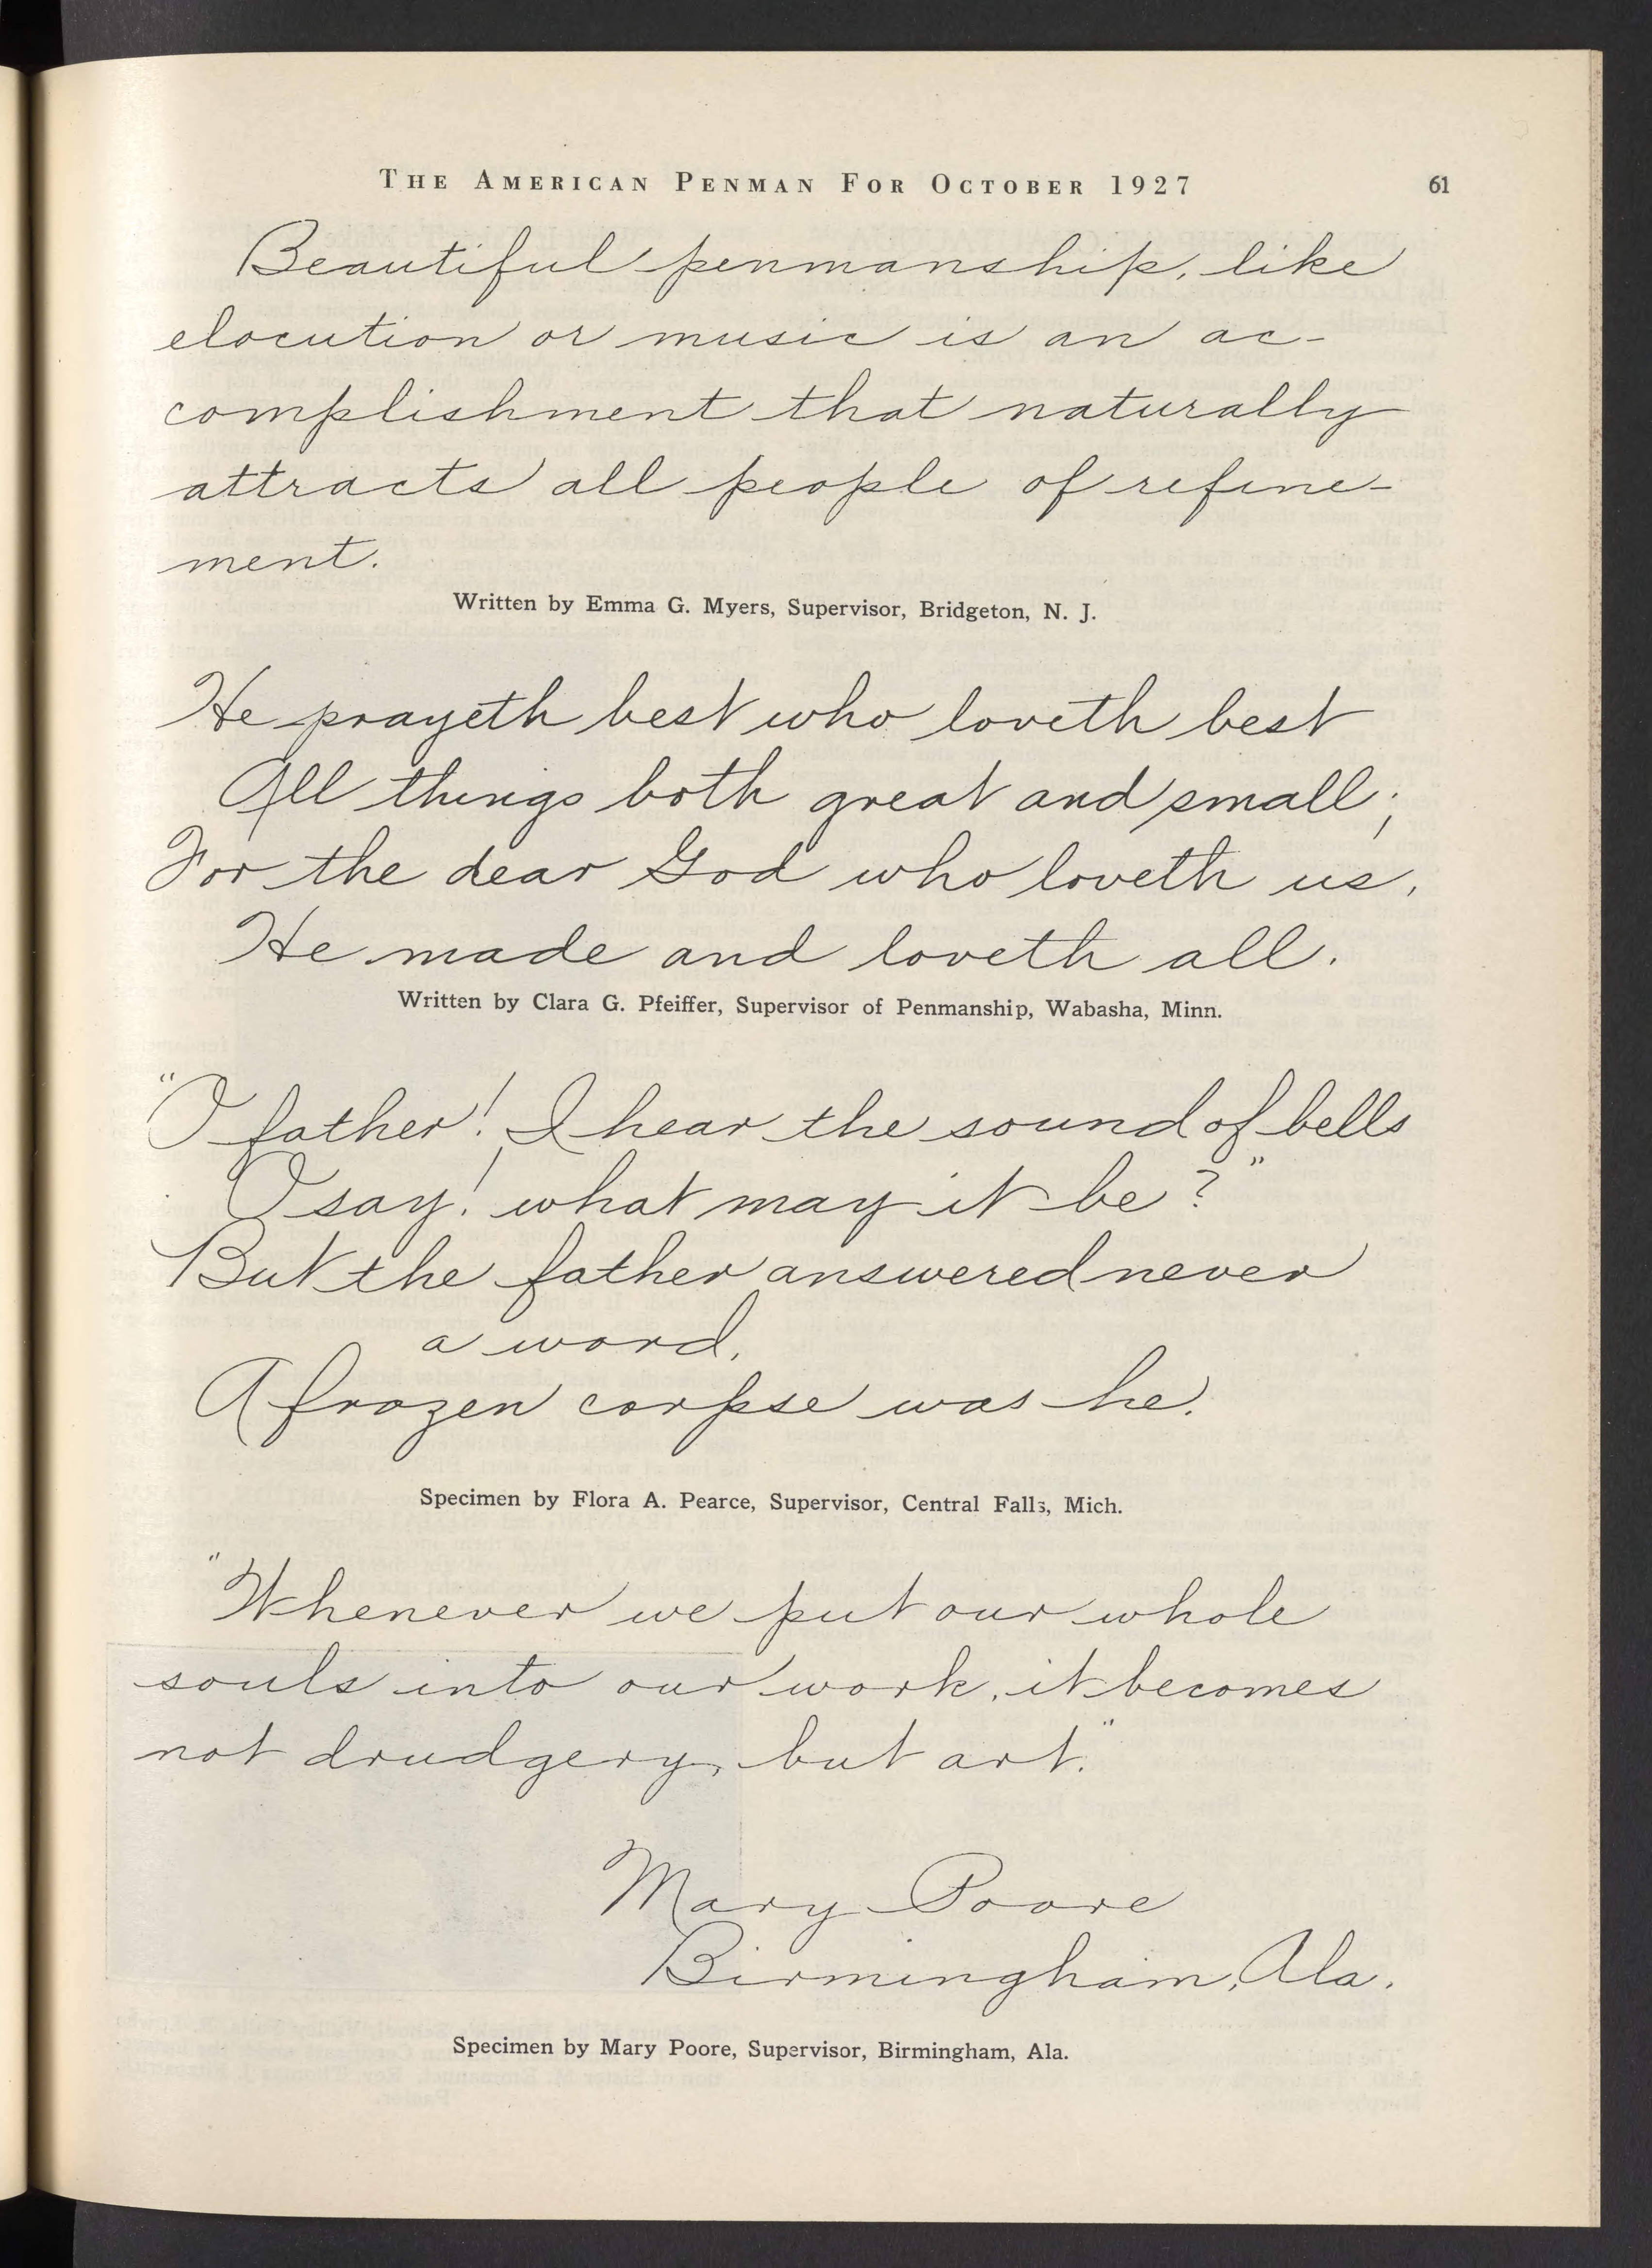 THE AMERICAN PENMAN FOR OCTOBER 1927 61
Beautiful penmanship, like
elocution or music is an ac-
complishment that naturally
attracts all people of refine-
ment.
Written by Emma G. Myers, Supervisor, Bridgeton, N. J.
He prayeth best who loveth best
All things both great and small;
For the dear God who loveth us,
He made and loveth all.
Written by Clara G. Pfeiffer, Supervisor of Penmanship, Wabasha, Minn.
"O father! I hear the sound of bells
O say! what may it be?"
But the father answered never
a word,
A frozen corpse was he.
Specimen by Flora A. Pearce, Supervisor, Central Falls, Mich.
"Whenever we put our whole
souls into our work, it becomes
not drudgery, but art."
Mary Poore
Birmingham, Ala.
Specimen by Mary Poore, Supervisor, Birmingham, Ala.